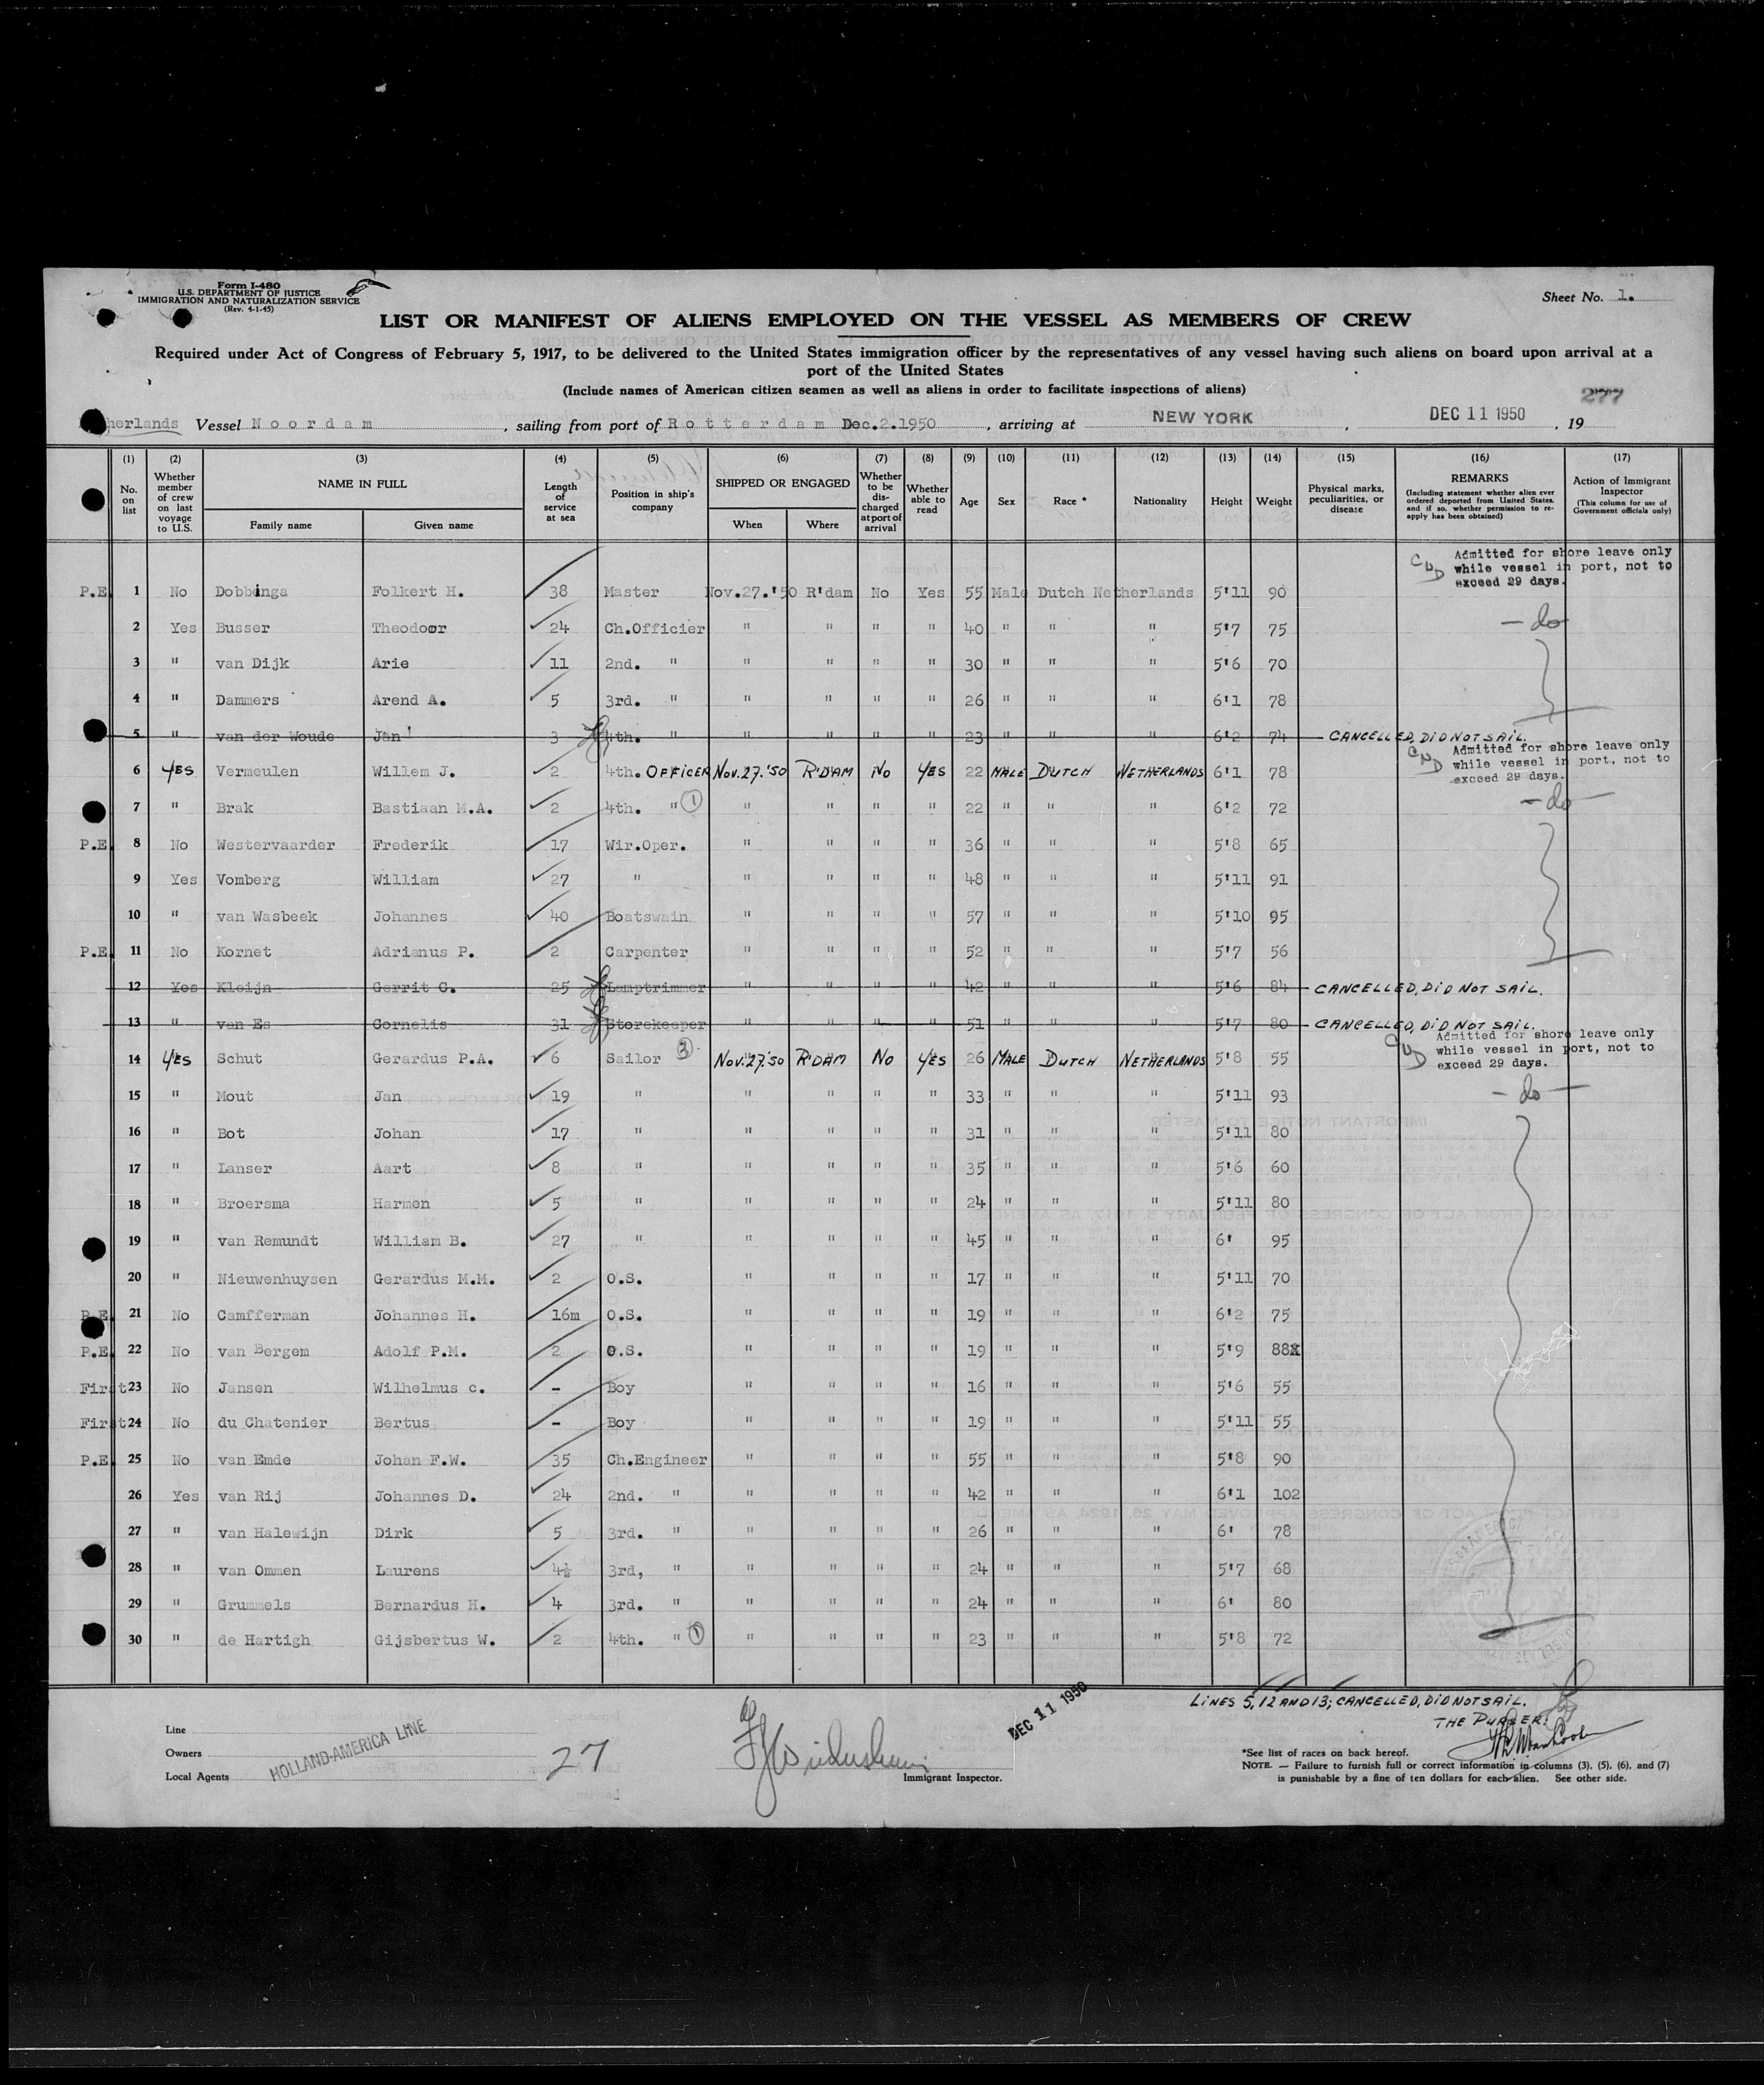 Form I-480
U.S. DEPARTMENT OF JUSTICE
IMMIGRATION AND NATURALIZATION SERVICE
(Rev. 4-1-45)
Sheet No. 1.
LIST OR MANIFEST OF ALIENS EMPLOYED ON THE VESSEL AS MEMBERS OF CREW
Required under Act of Congress of February 5, 1917, to be delivered to the United States immigration officer by the representatives of any vessel having such aliens on board upon arrival at a
port of the United States
(Include names of American citizen seamen as well as aliens in order to facilitate inspections of aliens)
277
herlands Vessel Noordam, sailing from port of Rotterdam Dec.2.1950, arriving at NEW YORK, DEC 11 1950, 19
(1) (2) (3) (4) (5) (6) (7) (8) (9) (10) (11) (12) (13) (14) (15) (16) (17)
No. on list
Whether member of crew on last voyage to U.S.
NAME IN FULL
Family name Given name
Length of service at sea
Position in ship's company
SHIPPED OR ENGAGED
When Where
Whether to be discharged at port of arrival
Whether able to read
Age Sex Race * Nationality Height Weight
Physical marks, peculiarities, or disease
REMARKS
(Including statement whether alien ever ordered deported from United States, and if so, whether permission to re-apply has been obtained)
Action of Immigrant Inspector
(This column for use of Government officials only)
Admitted for shore leave only
while vessel in port, not to
exceed 29 days.
P.E. 1 No Dobbinga Folkert H. 38 Master Nov.27.'50 R'dam No Yes 55 Male Dutch Netherlands 5'11 90
2 Yes Busser Theodoor 24 Ch.Officier " " " " 40 " " " 5'7 75 - do
3 " van Dijk Arie 11 2nd. " " " " " 30 " " " 5'6 70
4 " Dammers Arend A. 5 3rd. " " " " " 26 " " " 6'1 78
5 " van der Woude Jan 3 4th. " " " " " 23 " " " 6'2 74 CANCELLED, DID NOT SAIL.
Admitted for shore leave only
while vessel in port, not to
exceed 29 days.
6 YES Vermeulen Willem J. 2 4th. OFFICER Nov.27.'50 R'DAM No YES 22 MALE DUTCH NETHERLANDS 6'1 78
7 " Brak Bastiaan M.A. 2 4th. " 1 " " " " 22 " " " 6'2 72 - do -
P.E. 8 No Westervaarder Frederik 17 Wir.Oper. " " " " 36 " " " 5'8 65
9 Yes Vomberg William 27 " " " " " 48 " " " 5'11 91
10 " van Wasbeek Johannes 40 Boatswain " " " " 57 " " " 5'10 95
P.E. 11 No Kornet Adrianus P. 2 Carpenter " " " " 52 " " " 5'7 56
12 Yes Kleijn Gerrit C. 25 Lamptrimmer " " " " 42 " " " 5'6 84 CANCELLED, DID NOT SAIL.
13 " van Es Cornelis 31 Storekeeper " " " " 51 " " " 5'7 80 CANCELLED, DID NOT SAIL.
Admitted for shore leave only
while vessel in port, not to
exceed 29 days.
14 YES Schut Gerardus P.A. 6 Sailor 3 Nov.27.'50 R'DAM No YES 26 MALE DUTCH NETHERLANDS 5'8 55
15 " Mout Jan 19 " " " " " 33 " " " 5'11 93 - do -
16 " Bot Johan 17 " " " " " 31 " " " 5'11 80
17 " Lanser Aart 8 " " " " " 35 " " " 5'6 60
18 " Broersma Harmen 5 " " " " " 24 " " " 5'11 80
19 " van Remundt William B. 27 " " " " " 45 " " " 6' 95
20 " Nieuwenhuysen Gerardus M.M. 2 O.S. " " " " 17 " " " 5'11 70
P.E. 21 No Camfferman Johannes H. 16m O.S. " " " " 19 " " " 6'2 75
P.E. 22 No van Bergem Adolf P.M. 2 O.S. " " " " 19 " " " 5'9 88
First 23 No Jansen Wilhelmus c. - Boy " " " " 16 " " " 5'6 55
First 24 No du Chatenier Bertus - Boy " " " " 19 " " " 5'11 55
P.E. 25 No van Emde Johan F.W. 35 Ch.Engineer " " " " 55 " " " 5'8 90
26 Yes van Rij Johannes D. 24 2nd. " " " " " 42 " " " 6'1 102
27 " van Halewijn Dirk 5 3rd. " " " " " 26 " " " 6' 78
28 " van Ommen Laurens 4½ 3rd, " " " " " 24 " " " 5'7 68
29 " Grummels Bernardus H. 4 3rd. " " " " " 24 " " " 6' 80
30 " de Hartigh Gijsbertus W. 2 4th. " 1 " " " " 23 " " " 5'8 72
LINES 5, 12 AND 13; CANCELLED, DID NOT SAIL.
THE PURSER:
DEC 11 1950
Line
Owners
Local Agents
HOLLAND-AMERICA LINE
27
Immigrant Inspector.
*See list of races on back hereof.
NOTE. — Failure to furnish full or correct information in columns (3), (5), (6), and (7)
is punishable by a fine of ten dollars for each alien. See other side.